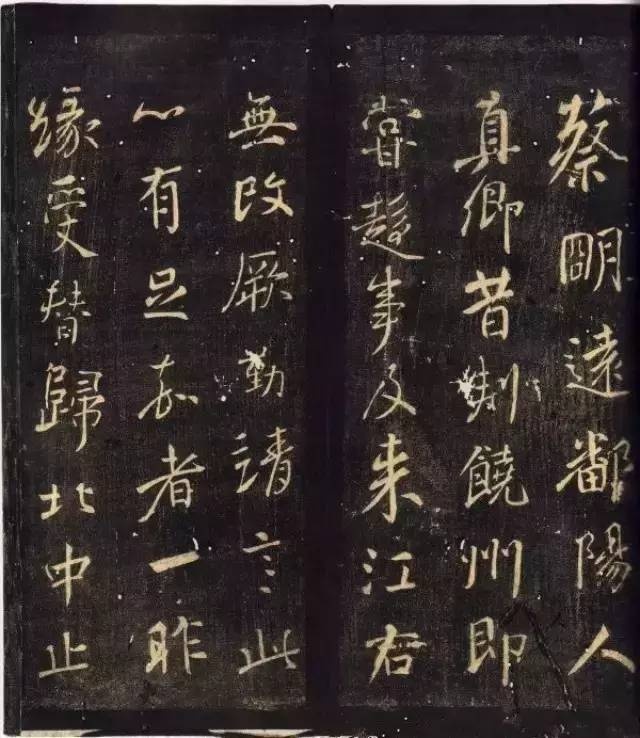 蔡明遠鄱陽人
真卿昔刺饒州即
嘗趨事及来江右
無改厥勤靖言此
心有足嘉者一昨
緣受替歸北中止